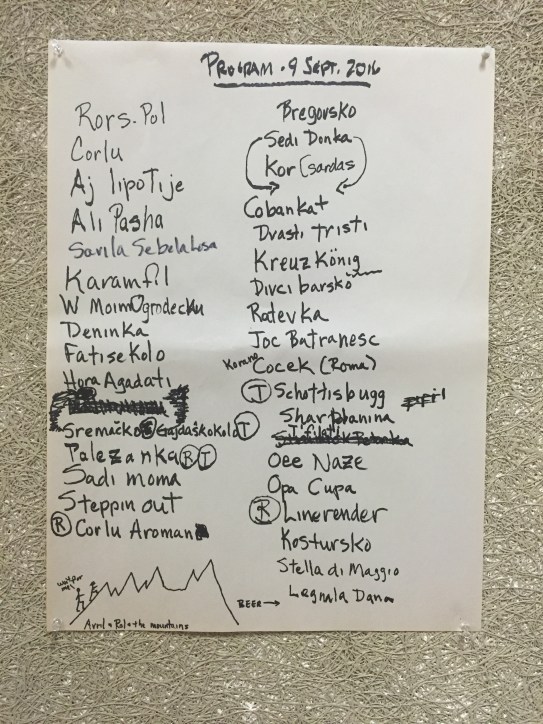 PROGRAM · 9 SEPT. 2016
Rors. Pol
Corlu
Aj lipoTije
Ali Pasha
Savila Sebela Losa
Karamfil
W Moim Ogrodecku
Deninka
Fatise Kolo
Hora Agadati
Sremačko Gajdaškokolo T
Palezanka R T
Sadi moma
Steppin out
R Corlu Aroman
wait for me!
Avril & Pal & the mountains
Bregovsko
Sedi Donka
Kor Csardas
Cobankat
Dvasti tristi
Kreuz König
Divcibarsko
Ratevka
Joc Batranesc
Korano Cocek (Roma)
T Schottisbugg
Sharplanina
Tfilati
Oee Naze
Opa Cupa
R Linerender
Kostursko
Stella di Maggio
BEER → Lagnala Dana